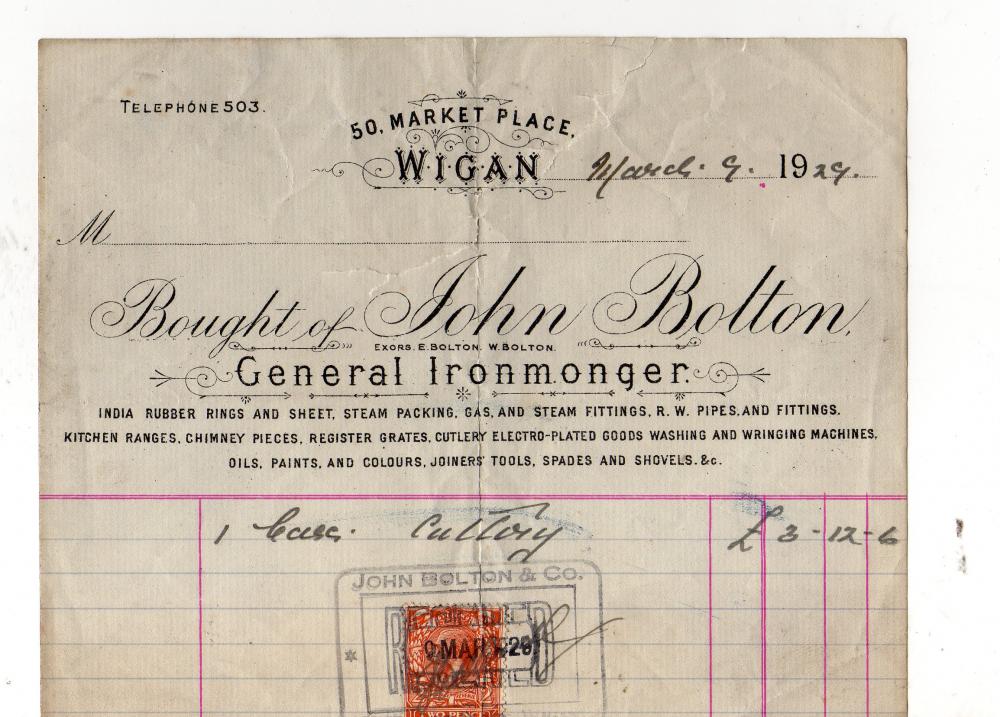 TELEPHONE 503.
50, MARKET PLACE,
WIGAN March. 9. 1929.
M
Bought of John Bolton.
EXORS. E. BOLTON. W. BOLTON.
General Ironmonger.
INDIA RUBBER RINGS AND SHEET, STEAM PACKING, GAS, AND STEAM FITTINGS, R. W. PIPES, AND FITTINGS.
KITCHEN RANGES, CHIMNEY PIECES, REGISTER GRATES, CUTLERY ELECTRO-PLATED GOODS WASHING AND WRINGING MACHINES,
OILS, PAINTS, AND COLOURS, JOINERS' TOOLS, SPADES AND SHOVELS. &c.
1 Case. Cutlery £ 3-12-6
JOHN BOLTON & Co.
9 MAR 29
TWO PENCE